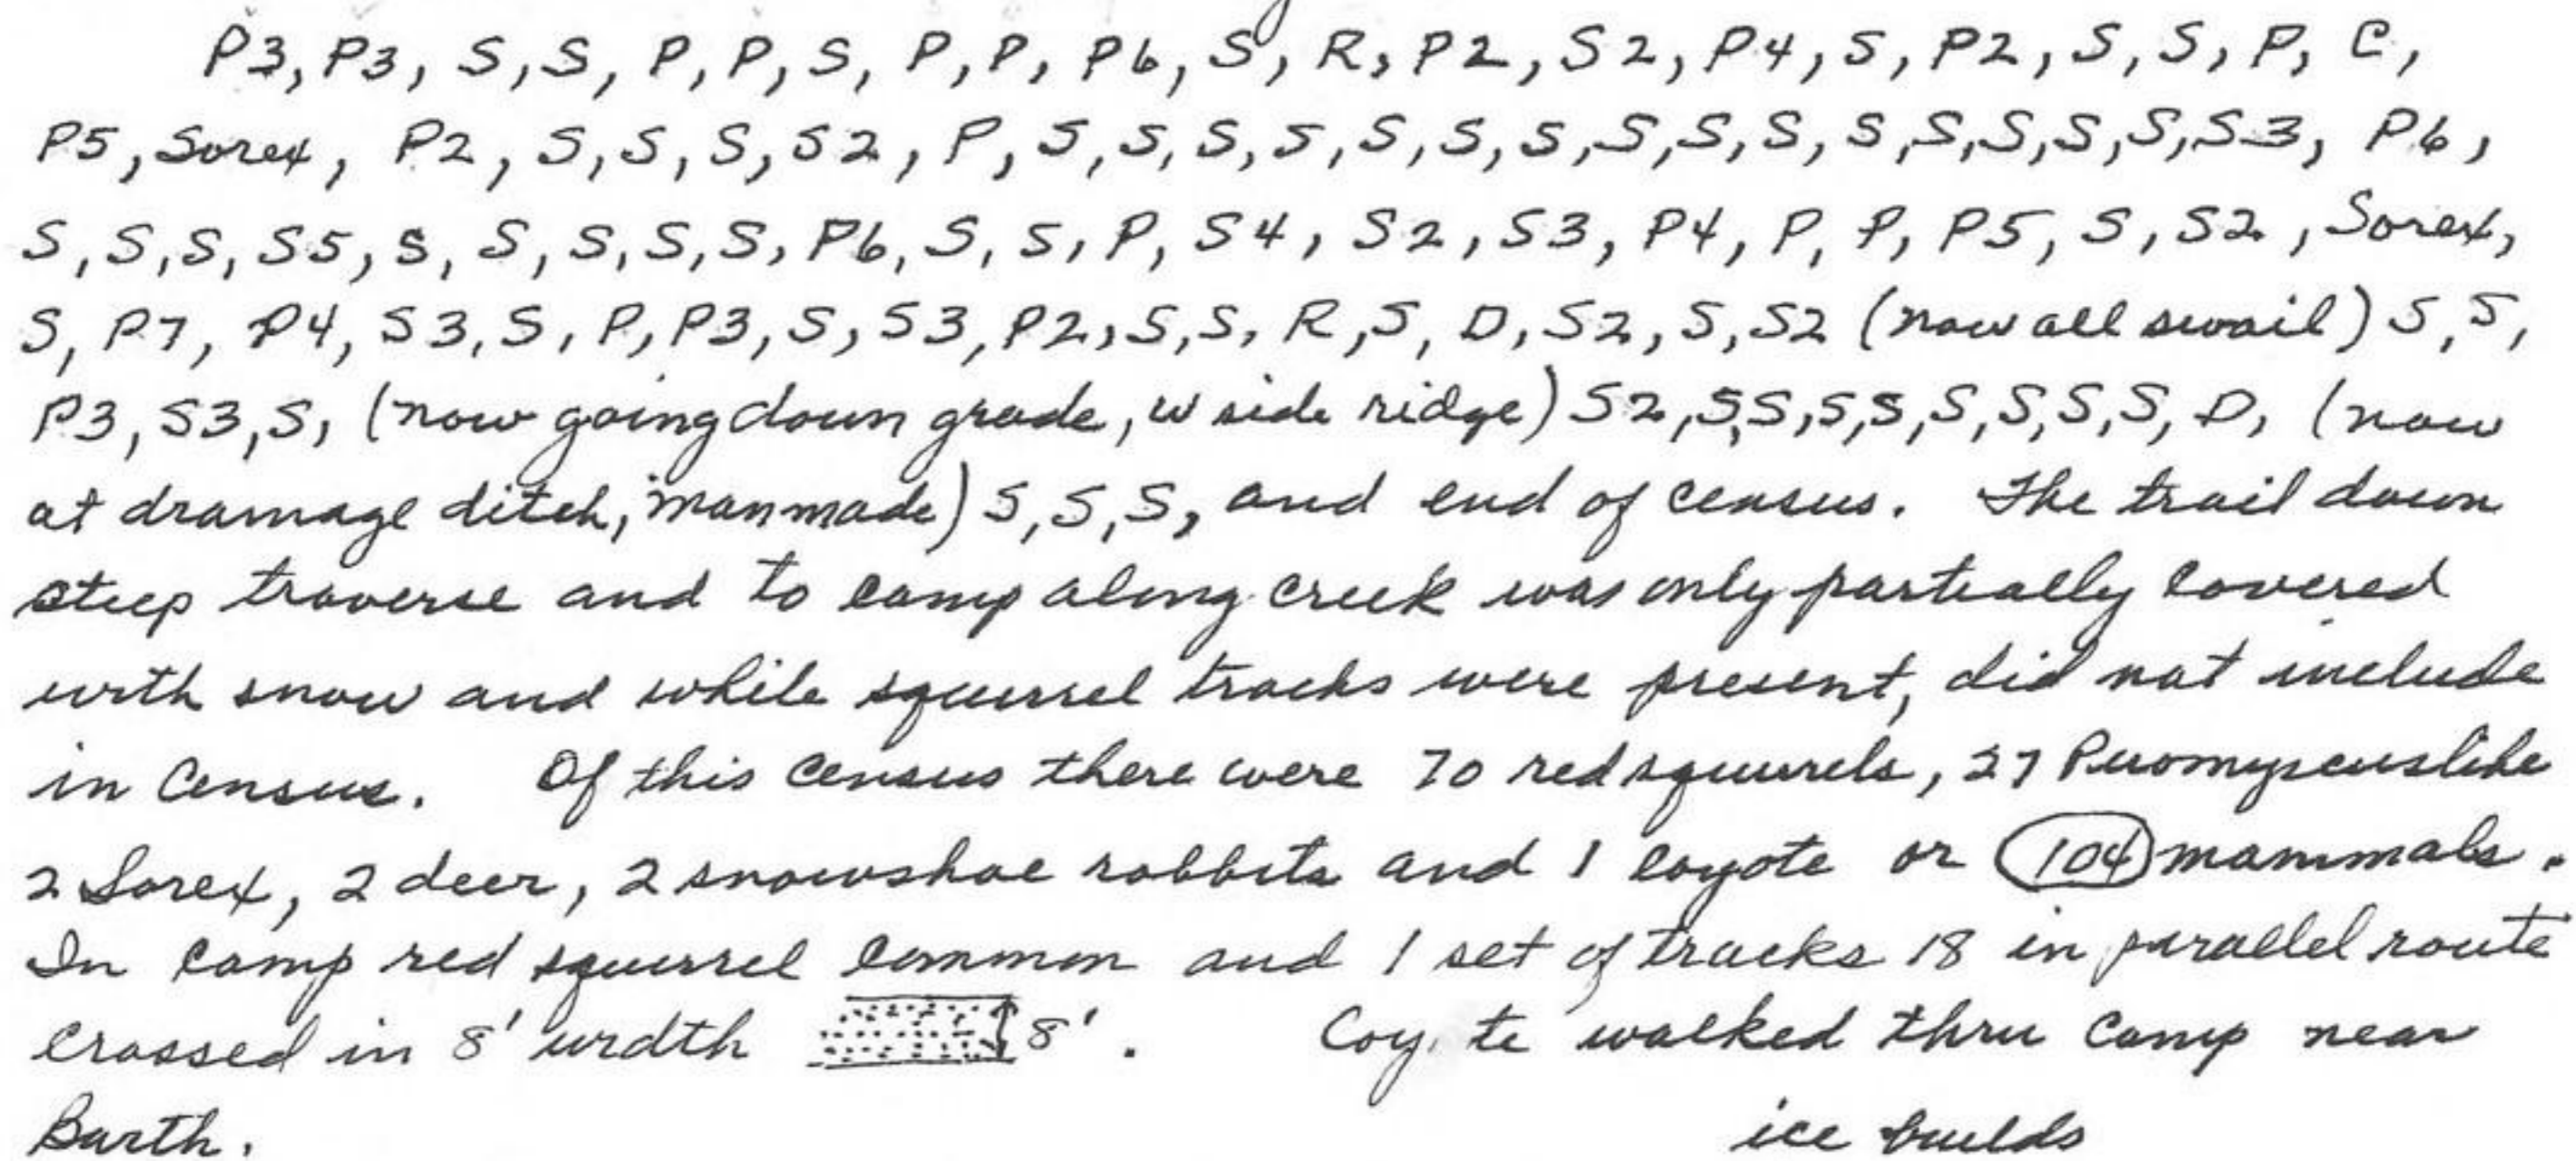 P3, P3, S, S, P, P, S, P, P, P6, S, R, P2, S2, P4, S, P2, S, S, P, C,
P5, Sorex, P2, S, S, S, S2, P, S, S, S, S, S, S, S, S, S, S, S, S, S, S, S, S3, P6,
S, S, S, S5, S, S, S, S, S, P6, S, S, P, S4, S2, S3, P4, P, P, P5, S, S2, Sorex,
S, P7, P4, S3, S, P, P3, S, S3, P2, S, S, R, S, D, S2, S, S2 (now all swail) S, S,
P3, S3, S, (now going down grade, w side ridge) S2, S, S, S, S, S, S, S, S, D, (now
at dramage ditch, manmade) S, S, S, and end of census. The trail down
steep traverse and to camp along creek was only partially covered
with snow and while squirrel tracks were present, did not include
in census. Of this census there were 70 red squirrels, 27 Peromyscuslike
2 Sorex, 2 deer, 2 snowshoe rabbits and 1 coyote or 104 mammals.
In camp red squirrel common and 1 set of tracks 18 in parallel route
crossed in 8' width 8'. Coyote walked thru camp near
Barth. ice builds